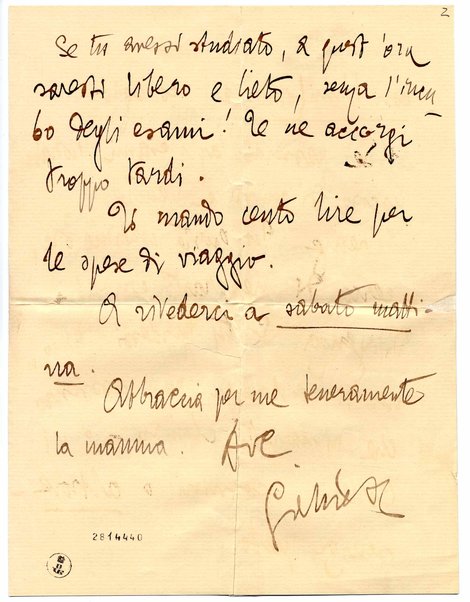 2
Se tu avessi studiato, a quest'ora
saresti libero e lieto, senza l'incu-
bo degli esami! Te ne accorgi
troppo tardi.
Ti mando cento lire per
le spese di viaggio.
A rivederci a sabato matti-
na.
Abbraccia per me teneramente
la mamma. Ave
2814440